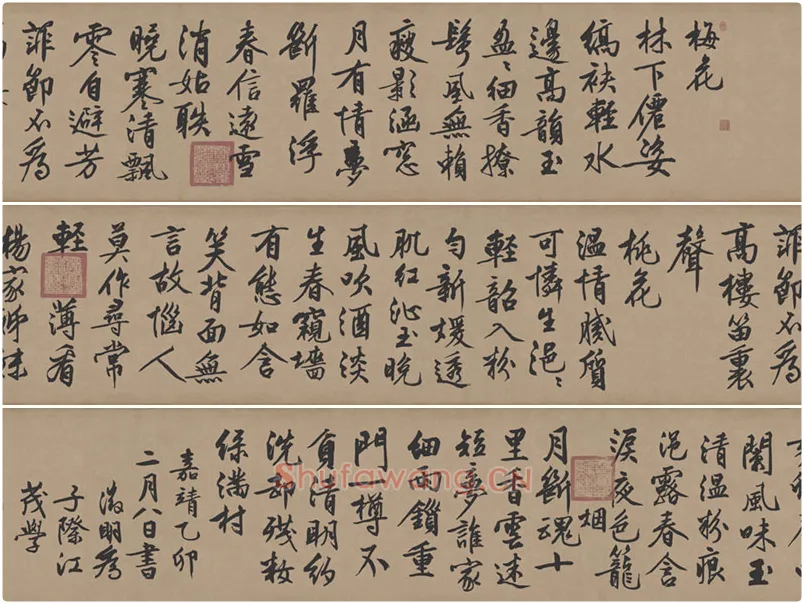 梅花
林下僊姿
縞袂輕水
邊高韻玉
盈〻細香撩
鬢風無賴
瘦影涵窓
月有情夢
斷羅浮
春信遠雪
消姑
曉寒清飄
零自避芳
菲節不爲
菲節不爲
高樓笛裏
聲
桃花
溫情膩質
可憐生浥〻
輕韶入粉
勻新煖透
肌紅沁玉晚
風吹酒淡
生春窺墻
有態如含
笑背面無
言故惱人
莫作尋常
輕薄看
楊家姊妹
蘭風味玉
清溫粉痕
浥露春含
淚夜色籠
烟
月斷魂十
里香雲迷
短夢誰家
細雨鎖重
門一樽不
負清明約
洗却殘妝
綠滿村
嘉靖乙卯
二月八日書
徵明爲
子際江
茂學
Shufawang.CN